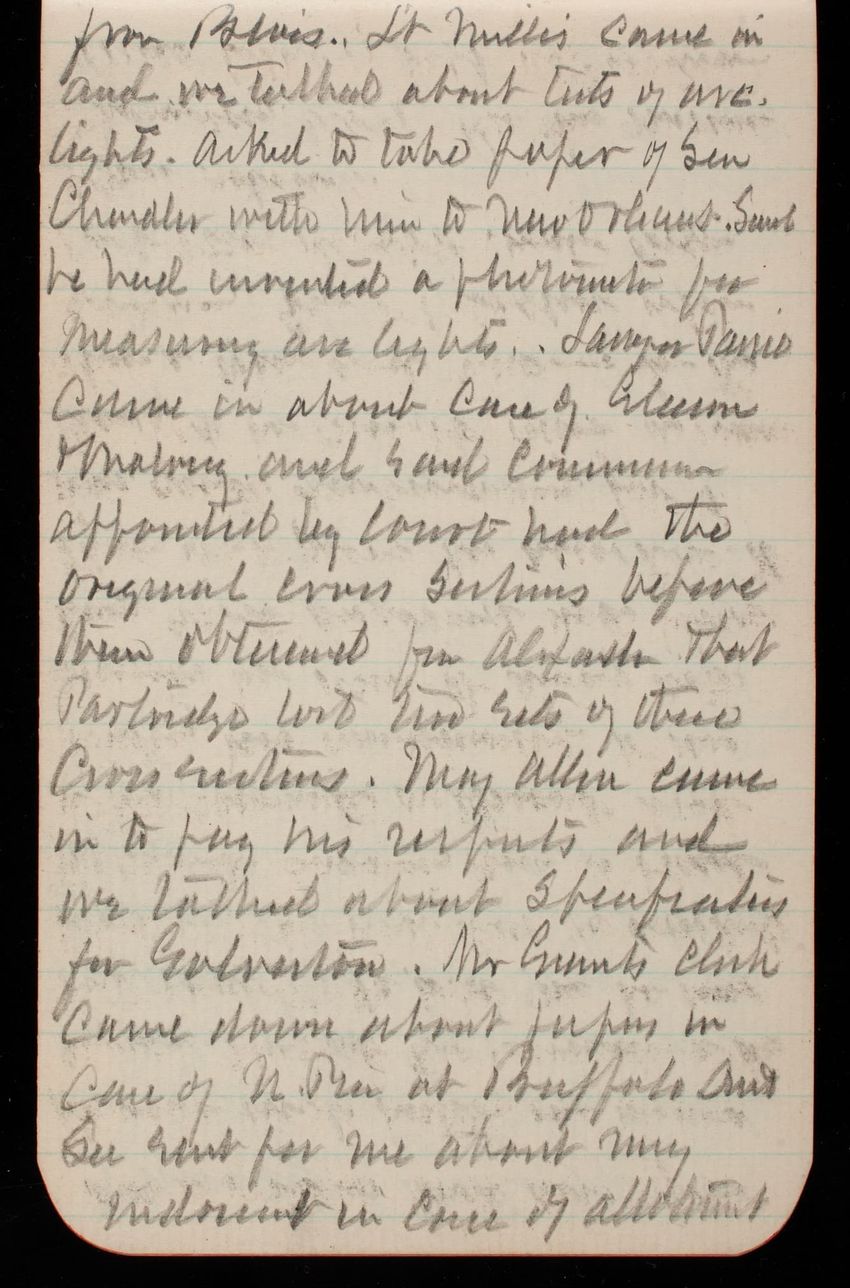 from Bevis. Lt Millis came in
and we talked about tests of arc.
lights. Asked to take paper of Gen
Chandler with him to New Orleans. Said
he had invented a photometer for
measuring arc lights. Lawyer
came in about case of Gleason
& Maloney and said Commission
appointed by Court had the
original cross sections before
them obtained from that
Partridge lost two sets of these
Cross sections. Maj Allen came
in to pay his respects and
we talked about Specifications
for Galveston. Mr Grants clerk
came down about papers in
case of N. Pier at Buffalo
Sec sent for me about my
indorsmt in case of allotment